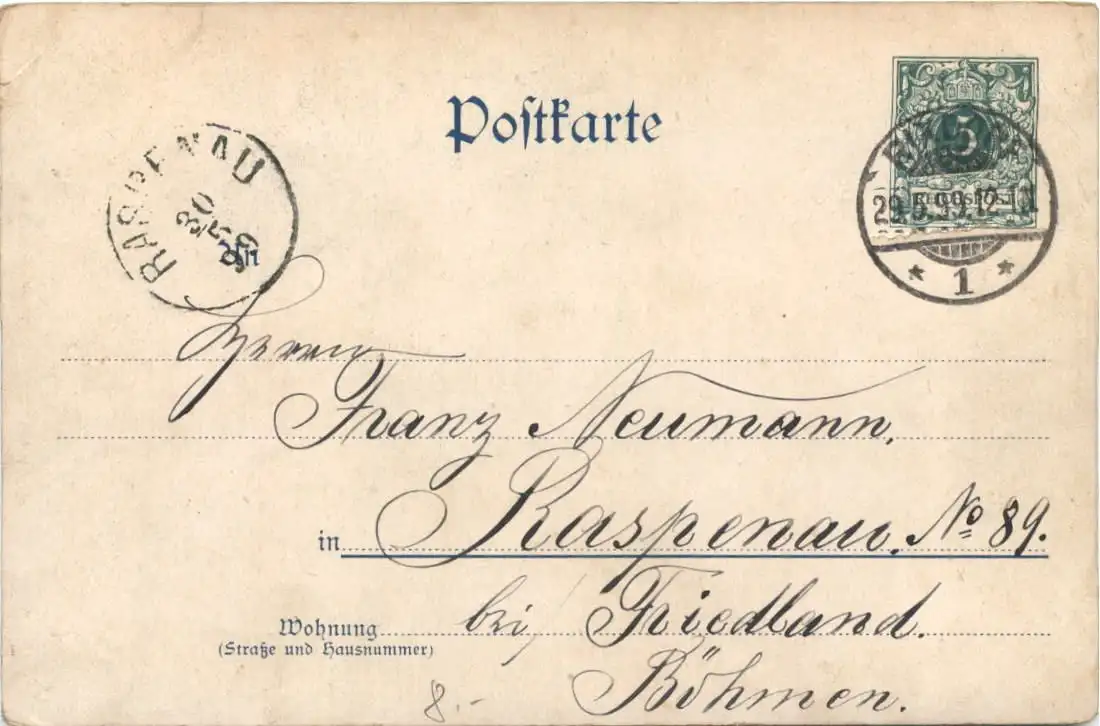 Postkarte
5
REICHSPOST
29.5.99.12-1
1
RASPENAU
30
5
99
An
Herrn
Franz Neumann.
in Raspenau. No 89.
Wohnung bei Friedland.
(Straße und Hausnummer)
Böhmen.
8.-